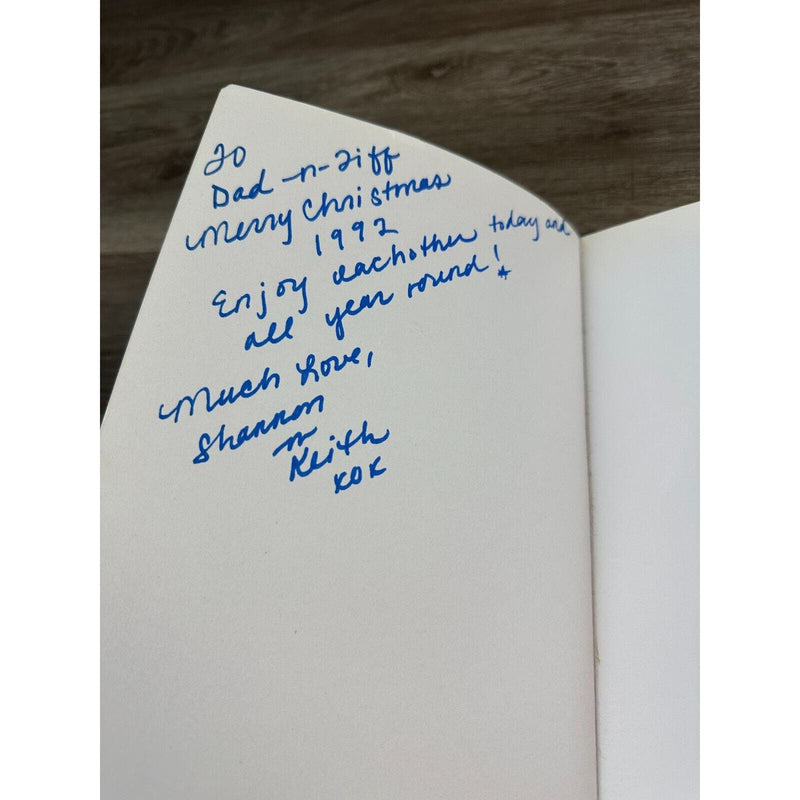 To
Dad -n- Tiff
Merry Christmas
1992
Enjoy eachother today and
all year round!
Much Love,
Shannon
n
Keith
xox